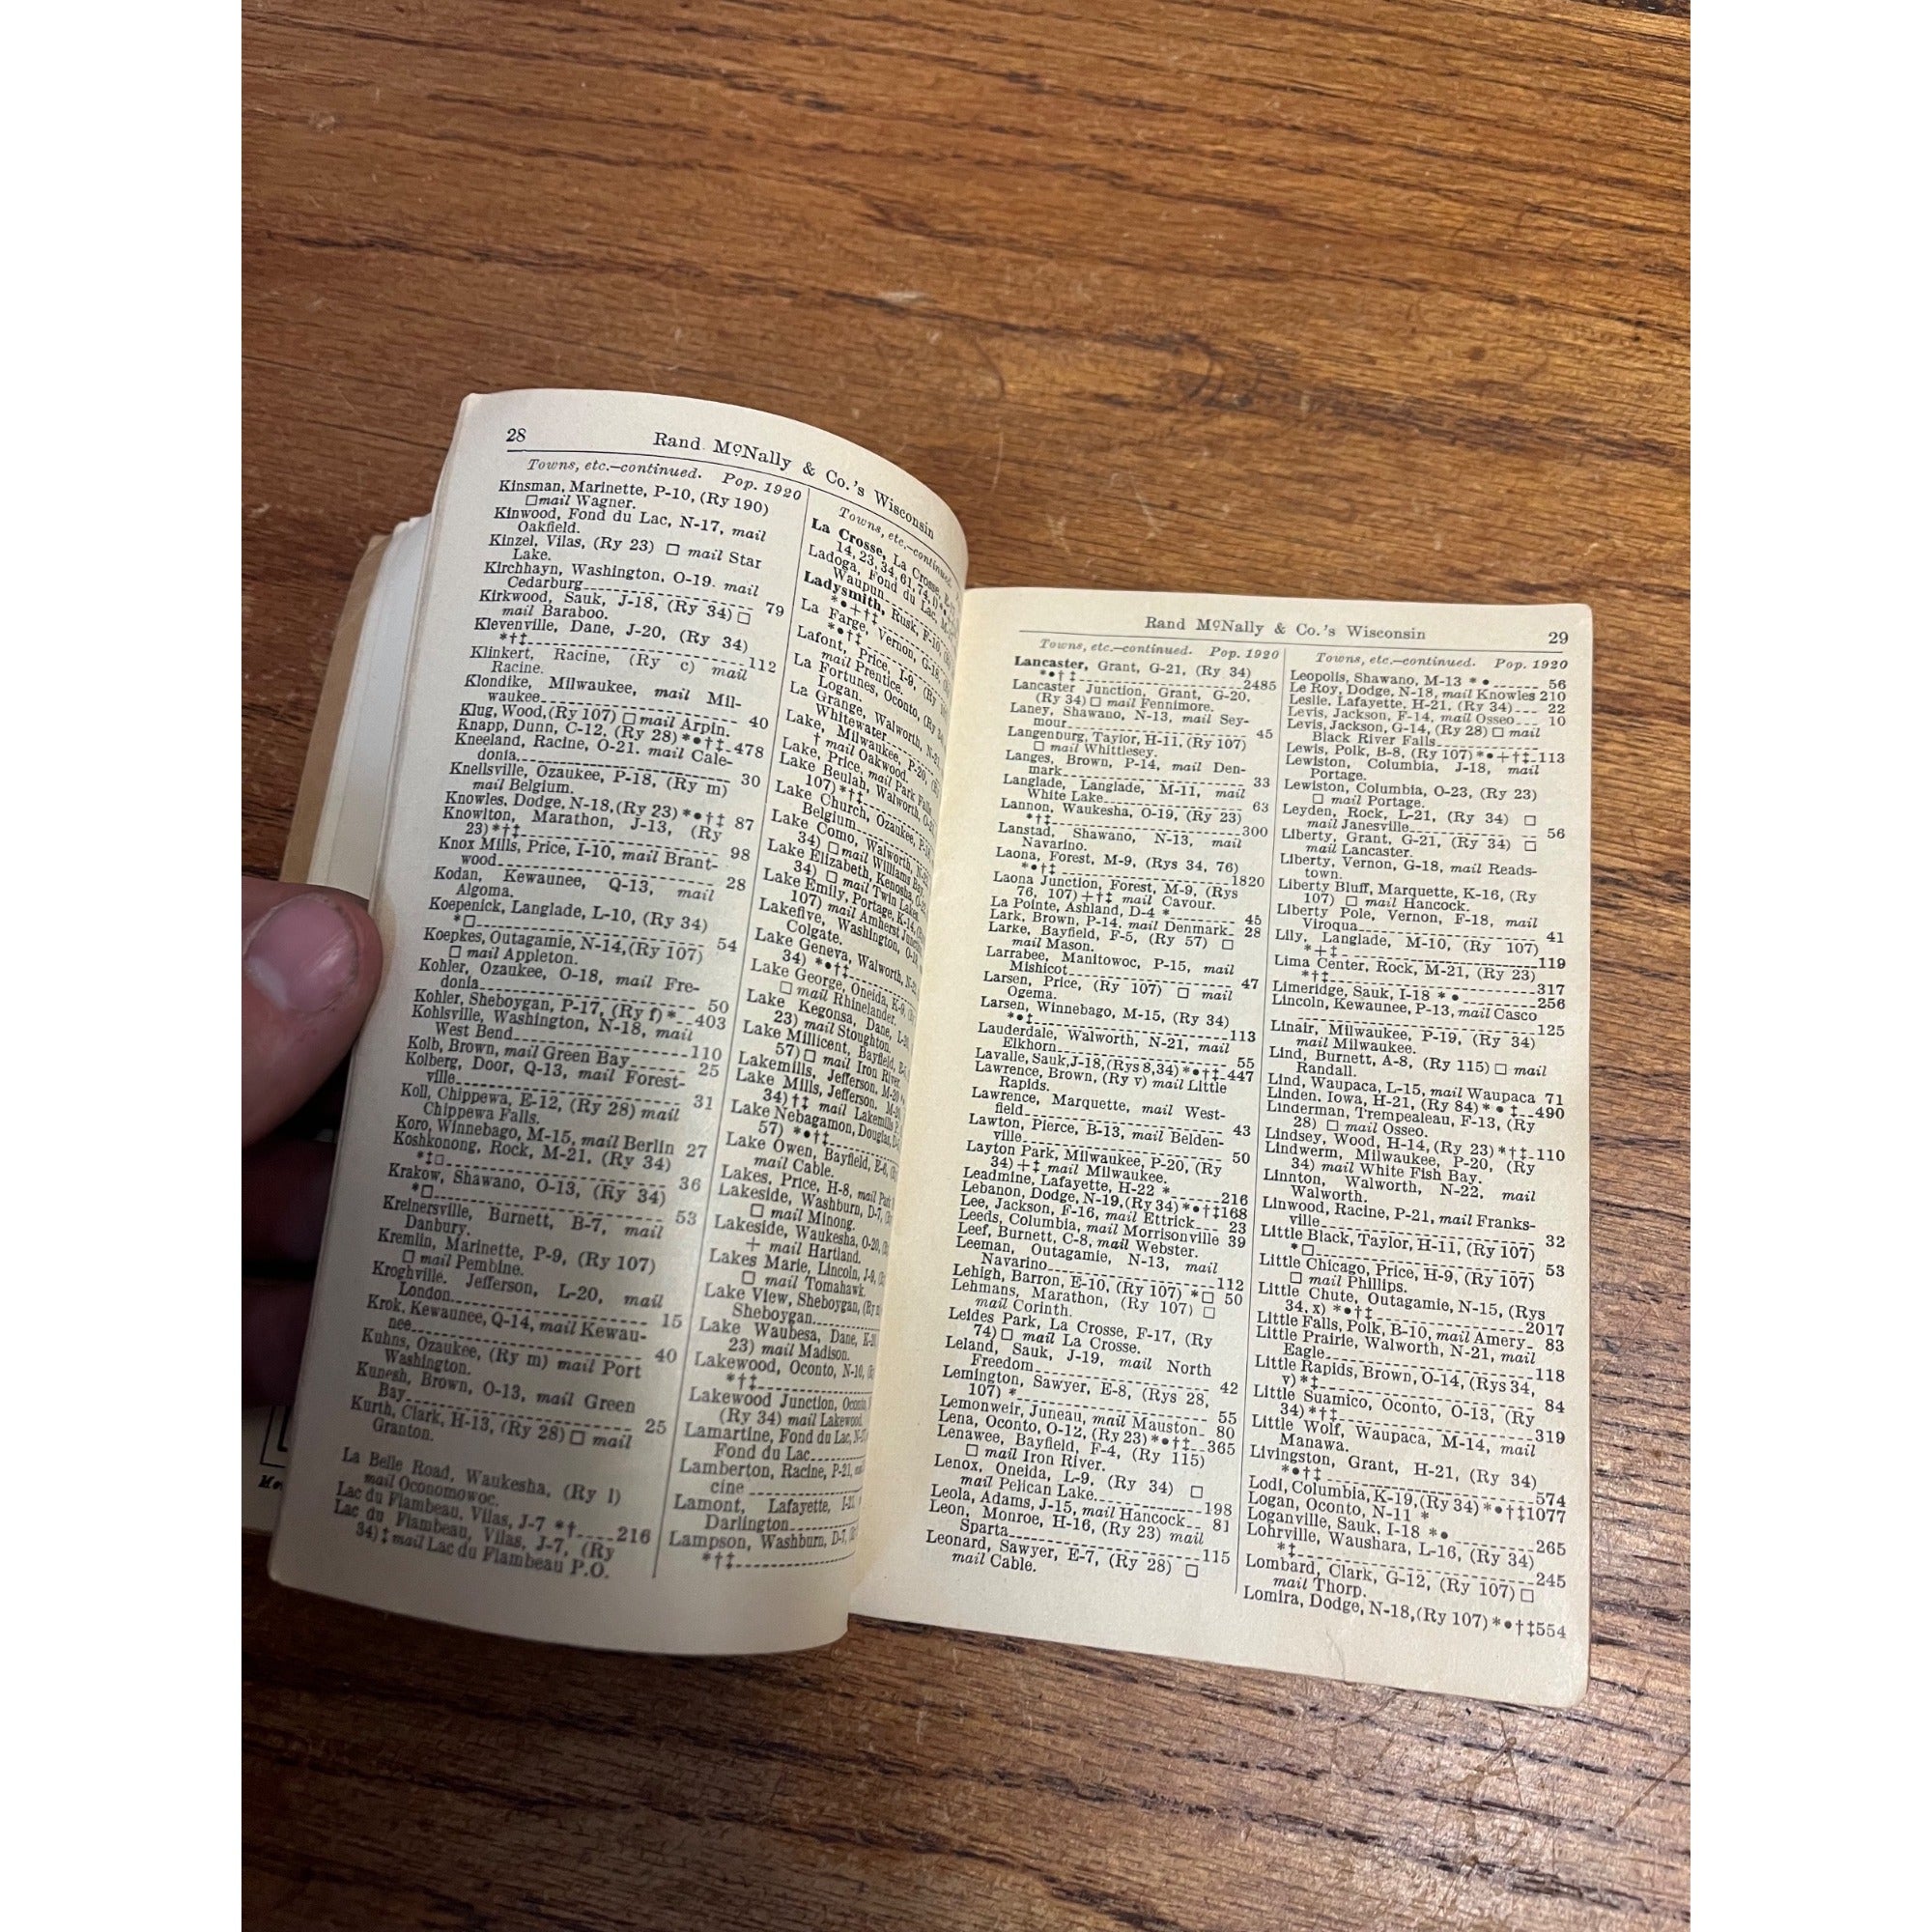 28
Rand McNally & Co.'s Wisconsin
Towns, etc.—continued. Pop. 1920
Kinsman, Marinette, P-10, (Ry 190)
□ mail Wagner.
Kinwood, Fond du Lac, N-17, mail
Oakfield.
Kinzel, Vilas, (Ry 23) □ mail Star
Lake.
Kirchhayn, Washington, O-19. mail
Cedarburg 79
Kirkwood, Sauk, J-18, (Ry 34) □
mail Baraboo.
Klevenville, Dane, J-20, (Ry 34)
*†‡ 112
Klinkert, Racine, (Ry c) mail
Racine.
Klondike, Milwaukee, mail Mil-
waukee 40
Klug, Wood, (Ry 107) □ mail Arpin.
Knapp, Dunn, C-12, (Ry 28) *●†‡ 478
Kneeland, Racine, O-21. mail Cale-
donia 30
Knellsville, Ozaukee, P-18, (Ry m)
mail Belgium.
Knowles, Dodge, N-18, (Ry 23) *●†‡ 87
Knowlton, Marathon, J-13, (Ry
23) *†‡ 98
Knox Mills, Price, I-10, mail Brant-
wood 28
Kodan, Kewaunee, Q-13, mail
Algoma.
Koepenick, Langlade, L-10, (Ry 34)
*□ 54
Koepkes, Outagamie, N-14, (Ry 107)
□ mail Appleton.
Kohler, Ozaukee, O-18, mail Fre-
donia 50
Kohler, Sheboygan, P-17, (Ry f) * 403
Kohlsville, Washington, N-18, mail
West Bend 110
Kolb, Brown, mail Green Bay 25
Kolberg, Door, Q-13, mail Forest-
ville 31
Koll, Chippewa, E-12, (Ry 28) mail
Chippewa Falls.
Koro, Winnebago, M-15, mail Berlin 27
Koshkonong, Rock, M-21, (Ry 34)
*‡□ 36
Krakow, Shawano, O-13, (Ry 34)
*□ 53
Kreinersville, Burnett, B-7, mail
Danbury.
Kremlin, Marinette, P-9, (Ry 107)
□ mail Pembine.
Kroghville. Jefferson, L-20, mail
London 15
Krok, Kewaunee, Q-14, mail Kewau-
nee 40
Kuhns, Ozaukee, (Ry m) mail Port
Washington.
Kunesh, Brown, O-13, mail Green
Bay 25
Kurth, Clark, H-13, (Ry 28) □ mail
Granton.
La Belle Road, Waukesha, (Ry l)
mail Oconomowoc.
Lac du Flambeau, Vilas, J-7 *† 216
Lac du Flambeau, Vilas, J-7, (Ry
34) ‡ mail Lac du Flambeau P.O.
Towns, etc.—continued.
La Crosse, La Crosse,
14, 23, 34, 61, 74,
Ladoga, Fond du Lac,
Waupun
Ladysmith, Rusk, F-10,
*●+†‡
La Farge, Vernon, G-18,
*●†‡
Lafont, Price, I-9, (Ry
mail Prentice.
La Fortunes, Oconto, (Ry
Logan.
La Grange, Walworth, N-21,
Whitewater
Lake, Milwaukee, P-20,
† mail Oakwood.
Lake, Price, mail Park Falls
Lake Beulah, Walworth, O-21,
107) *†‡
Lake Church, Ozaukee, P-18,
Belgium
Lake Como, Walworth,
34) □ mail Williams Bay
Lake Elizabeth, Kenosha,
34) □ mail Twin Lakes
Lake Emily, Portage, K-14,
107) mail Amherst
Lakefive, Washington, O-19,
Colgate.
Lake Geneva, Walworth,
34) *●†‡
Lake George, Oneida, K-9,
□ mail Rhinelander.
Lake Kegonsa, Dane, L-20,
23) mail Stoughton.
Lake Millicent, Bayfield,
57) □ mail Iron River.
Lakemills, Jefferson, M-20
Lake Mills, Jefferson, M-20,
34) †‡ mail Lakemills
Lake Nebagamon, Douglas,
57) *●†‡
Lake Owen, Bayfield, E-6,
mail Cable.
Lakes, Price, H-8, mail
Lakeside, Washburn, D-7,
□ mail Minong.
Lakeside, Waukesha, O-20,
+ mail Hartland.
Lakes Marie, Lincoln, J-9,
□ mail Tomahawk.
Lake View, Sheboygan,
Sheboygan
Lake Waubesa, Dane, K-20
23) mail Madison.
Lakewood, Oconto, N-10,
*†‡
Lakewood Junction,
(Ry 34) mail Lakewood
Lamartine, Fond du Lac,
Fond du Lac
Lamberton, Racine, P-21,
cine
Lamont, Lafayette, I-21,
Darlington
Lampson, Washburn, D-7,
*†‡
Rand McNally & Co.'s Wisconsin
29
Towns, etc.—continued. Pop. 1920
Lancaster, Grant, G-21, (Ry 34)
*●†‡ 2485
Lancaster Junction, Grant, G-20,
(Ry 34) □ mail Fennimore.
Laney, Shawano, N-13, mail Sey-
mour 45
Langenburg, Taylor, H-11, (Ry 107)
□ mail Whittlesey.
Langes, Brown, P-14, mail Den-
mark 33
Langlade, Langlade, M-11, mail
White Lake 63
Lannon, Waukesha, O-19, (Ry 23)
*†‡ 300
Lanstad, Shawano, N-13, mail
Navarino.
Laona, Forest, M-9, (Rys 34, 76)
*●†‡ 1820
Laona Junction, Forest, M-9, (Rys
76, 107) +†‡ mail Cavour.
La Pointe, Ashland, D-4 * 45
Lark, Brown, P-14, mail Denmark 28
Larke, Bayfield, F-5, (Ry 57) □
mail Mason.
Larrabee, Manitowoc, P-15, mail
Mishicot 47
Larsen, Price, (Ry 107) □ mail
Ogema.
Larsen, Winnebago, M-15, (Ry 34)
*●‡ 113
Lauderdale, Walworth, N-21, mail
Elkhorn 55
Lavalle, Sauk, J-18, (Rys 8, 34) *●†‡ 447
Lawrence, Brown, (Ry v) mail Little
Rapids.
Lawrence, Marquette, mail West-
field 43
Lawton, Pierce, B-13, mail Belden-
ville 50
Layton Park, Milwaukee, P-20, (Ry
34) +‡ mail Milwaukee.
Leadmine, Lafayette, H-22 * 216
Lebanon, Dodge, N-19, (Ry 34) *●†‡ 168
Lee, Jackson, F-16, mail Ettrick 23
Leeds, Columbia, mail Morrisonville 39
Leef, Burnett, C-8, mail Webster.
Leeman, Outagamie, N-13, mail
Navarino 112
Lehigh, Barron, E-10, (Ry 107) *□ 50
Lehmans, Marathon, (Ry 107) □
mail Corinth.
Leides Park, La Crosse, F-17, (Ry
74) □ mail La Crosse.
Leland, Sauk, J-19, mail North
Freedom 42
Lemington, Sawyer, E-8, (Rys 28,
107) * 55
Lemonweir, Juneau, mail Mauston 80
Lena, Oconto, O-12, (Ry 23) *●†‡ 365
Lenawee, Bayfield, F-4, (Ry 115)
□ mail Iron River.
Lenox, Oneida, L-9, (Ry 34) □
mail Pelican Lake 198
Leola, Adams, J-15, mail Hancock 81
Leon, Monroe, H-16, (Ry 23) mail
Sparta 115
Leonard, Sawyer, E-7, (Ry 28) □
mail Cable.
Towns, etc.—continued. Pop. 1920
Leopolis, Shawano, M-13 *● 56
Le Roy, Dodge, N-18, mail Knowles 210
Leslie, Lafayette, H-21, (Ry 34) 22
Levis, Jackson, F-14, mail Osseo 10
Levis, Jackson, G-14, (Ry 28) □ mail
Black River Falls
Lewis, Polk, B-8, (Ry 107) *●+†‡ 113
Lewiston, Columbia, J-18, mail
Portage.
Lewiston, Columbia, O-23, (Ry 23)
□ mail Portage.
Leyden, Rock, L-21, (Ry 34) □
mail Janesville 56
Liberty, Grant, G-21, (Ry 34) □
mail Lancaster.
Liberty, Vernon, G-18, mail Reads-
town.
Liberty Bluff, Marquette, K-16, (Ry
107) □ mail Hancock.
Liberty Pole, Vernon, F-18, mail
Viroqua 41
Lily, Langlade, M-10, (Ry 107)
*+‡ 119
Lima Center, Rock, M-21, (Ry 23)
*†‡ 317
Limeridge, Sauk, I-18 *● 256
Lincoln, Kewaunee, P-13, mail Casco
125
Linair, Milwaukee, P-19, (Ry 34)
mail Milwaukee.
Lind, Burnett, A-8, (Ry 115) □ mail
Randall.
Lind, Waupaca, L-15, mail Waupaca 71
Linden, Iowa, H-21, (Ry 84) *●‡ 490
Linderman, Trempealeau, F-13, (Ry
28) □ mail Osseo.
Lindsey, Wood, H-14, (Ry 23) *†‡ 110
Lindwerm, Milwaukee, P-20, (Ry
34) mail White Fish Bay.
Linnton, Walworth, N-22, mail
Walworth.
Linwood, Racine, P-21, mail Franks-
ville 32
Little Black, Taylor, H-11, (Ry 107)
*□ 53
Little Chicago, Price, H-9, (Ry 107)
□ mail Phillips.
Little Chute, Outagamie, N-15, (Rys
34, x) *●†‡ 2017
Little Falls, Polk, B-10, mail Amery 83
Little Prairie, Walworth, N-21, mail
Eagle 118
Little Rapids, Brown, O-14, (Rys 34,
v) *‡ 84
Little Suamico, Oconto, O-13, (Ry
34) *†‡ 319
Little Wolf, Waupaca, M-14, mail
Manawa.
Livingston, Grant, H-21, (Ry 34)
*●†‡ 574
Lodi, Columbia, K-19, (Ry 34) *●†‡ 1077
Logan, Oconto, N-11 *
Loganville, Sauk, I-18 *● 265
Lohrville, Waushara, L-16, (Ry 34)
*‡ 245
Lombard, Clark, G-12, (Ry 107) □
mail Thorp.
Lomira, Dodge, N-18, (Ry 107) *●†‡ 554